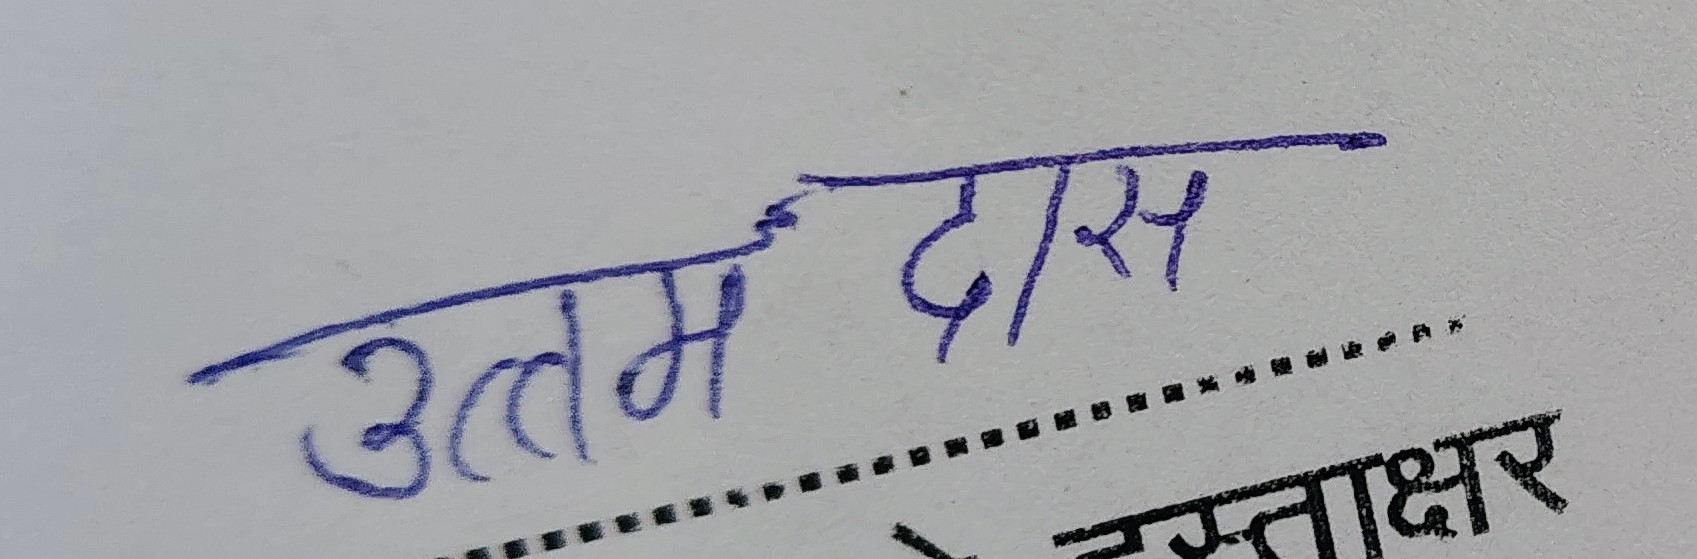 उत्तम दास
हस्ताक्षर